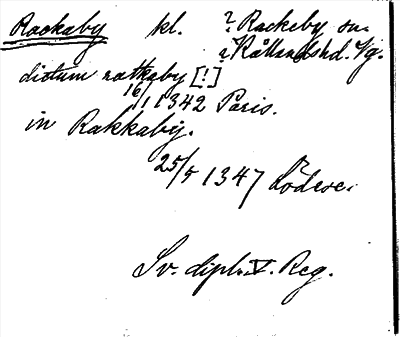 Rackaby kl. ? Rackeby sn.
? Kållandshd. Vg.
dictum rætkaby [!]
16/1 1342 Paris.
in Rakkaby.
25/5 1347 Lödese.
Sv. dipl. V. Reg.